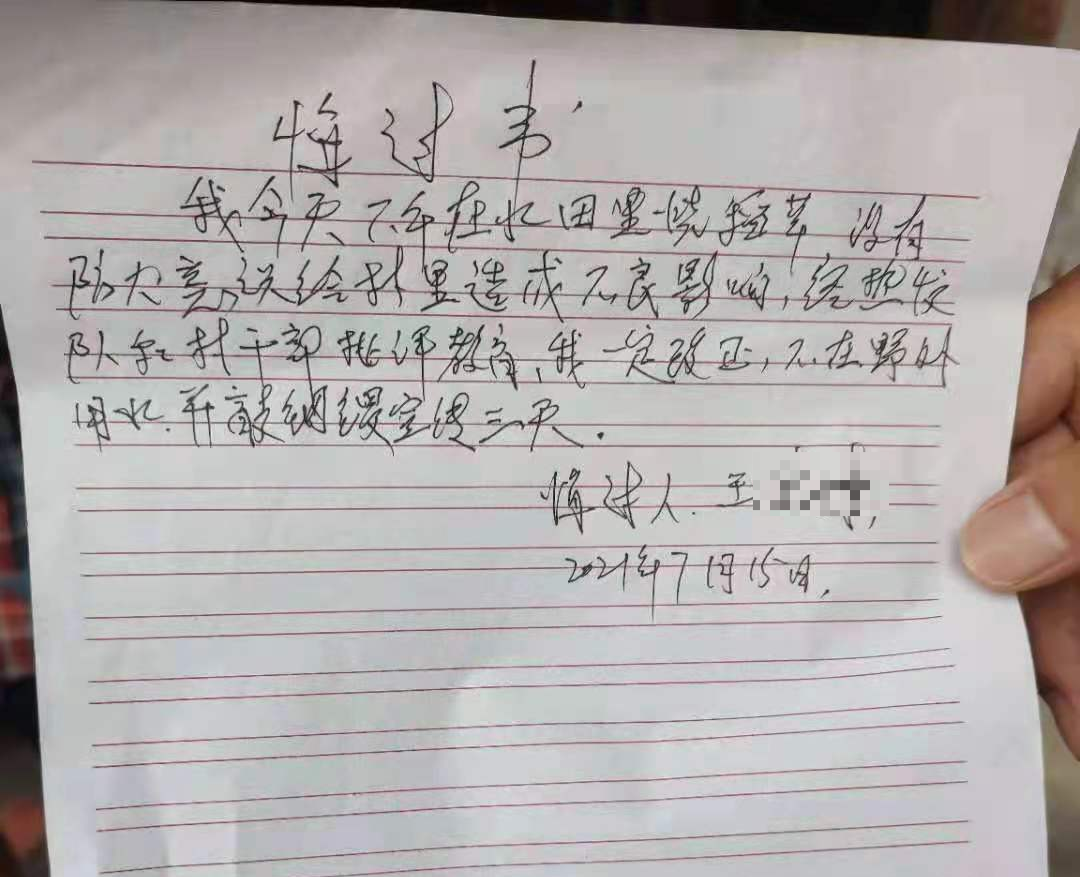 悔过书
我今天下午在水田里烧稻草 没有
防火意识给村里造成不良影响,经热
队和村干部批评教育,我一定改正,不在野外
用火.并敲锣宣传三天.
悔过人.王
2021年7月15日.